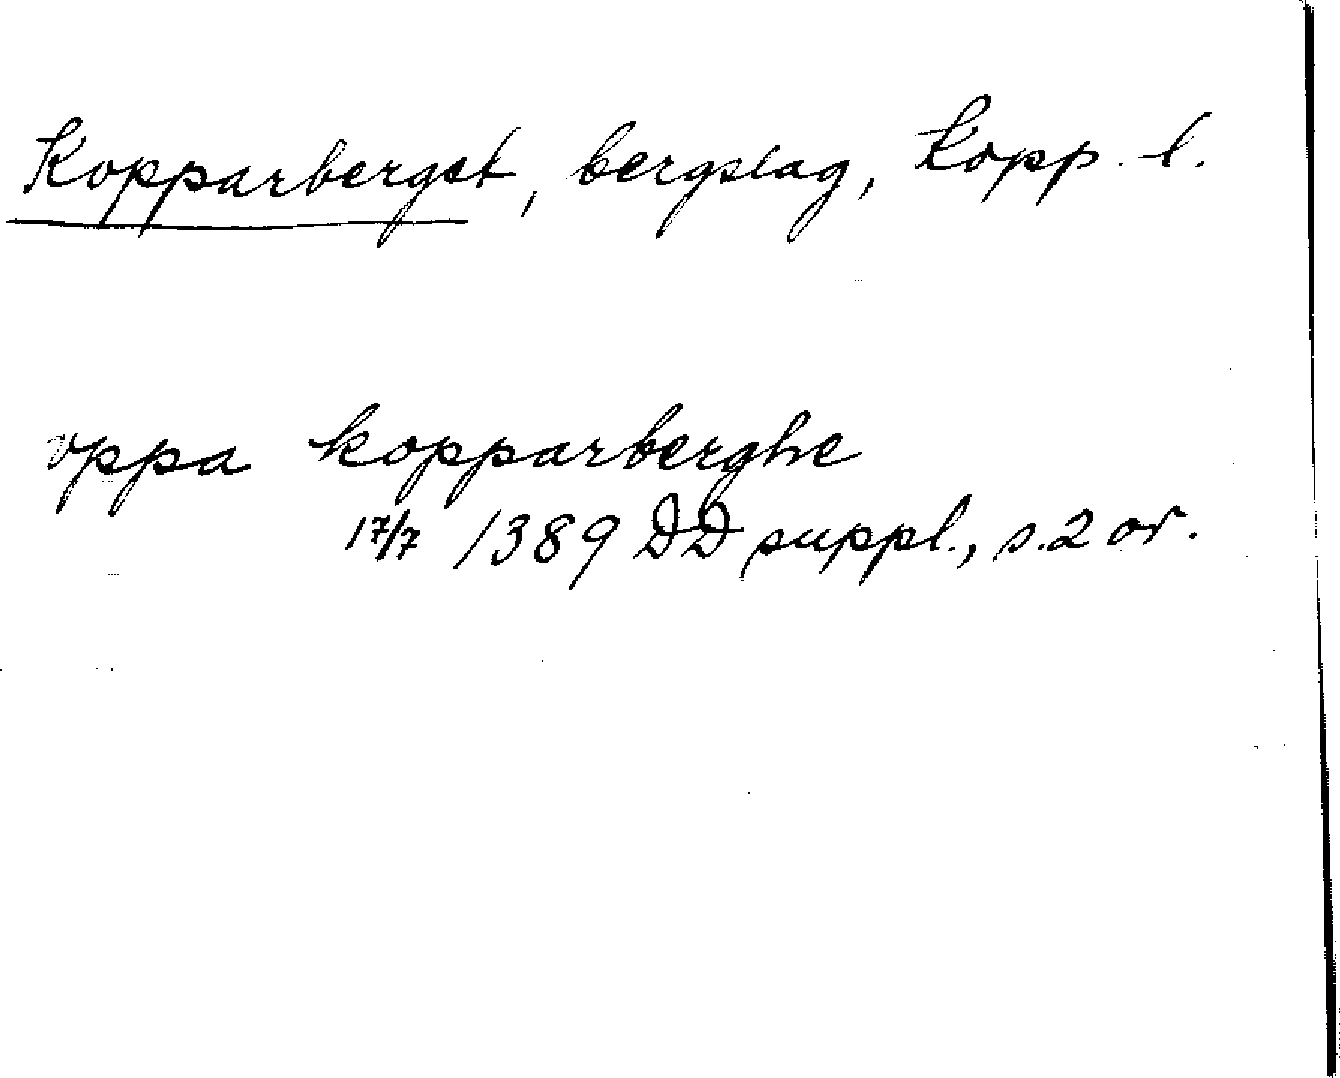 Kopparberget, bergslag, Kopp. l.
vppa kopparberghe
17/7 1389 DD suppl., s. 2 or.